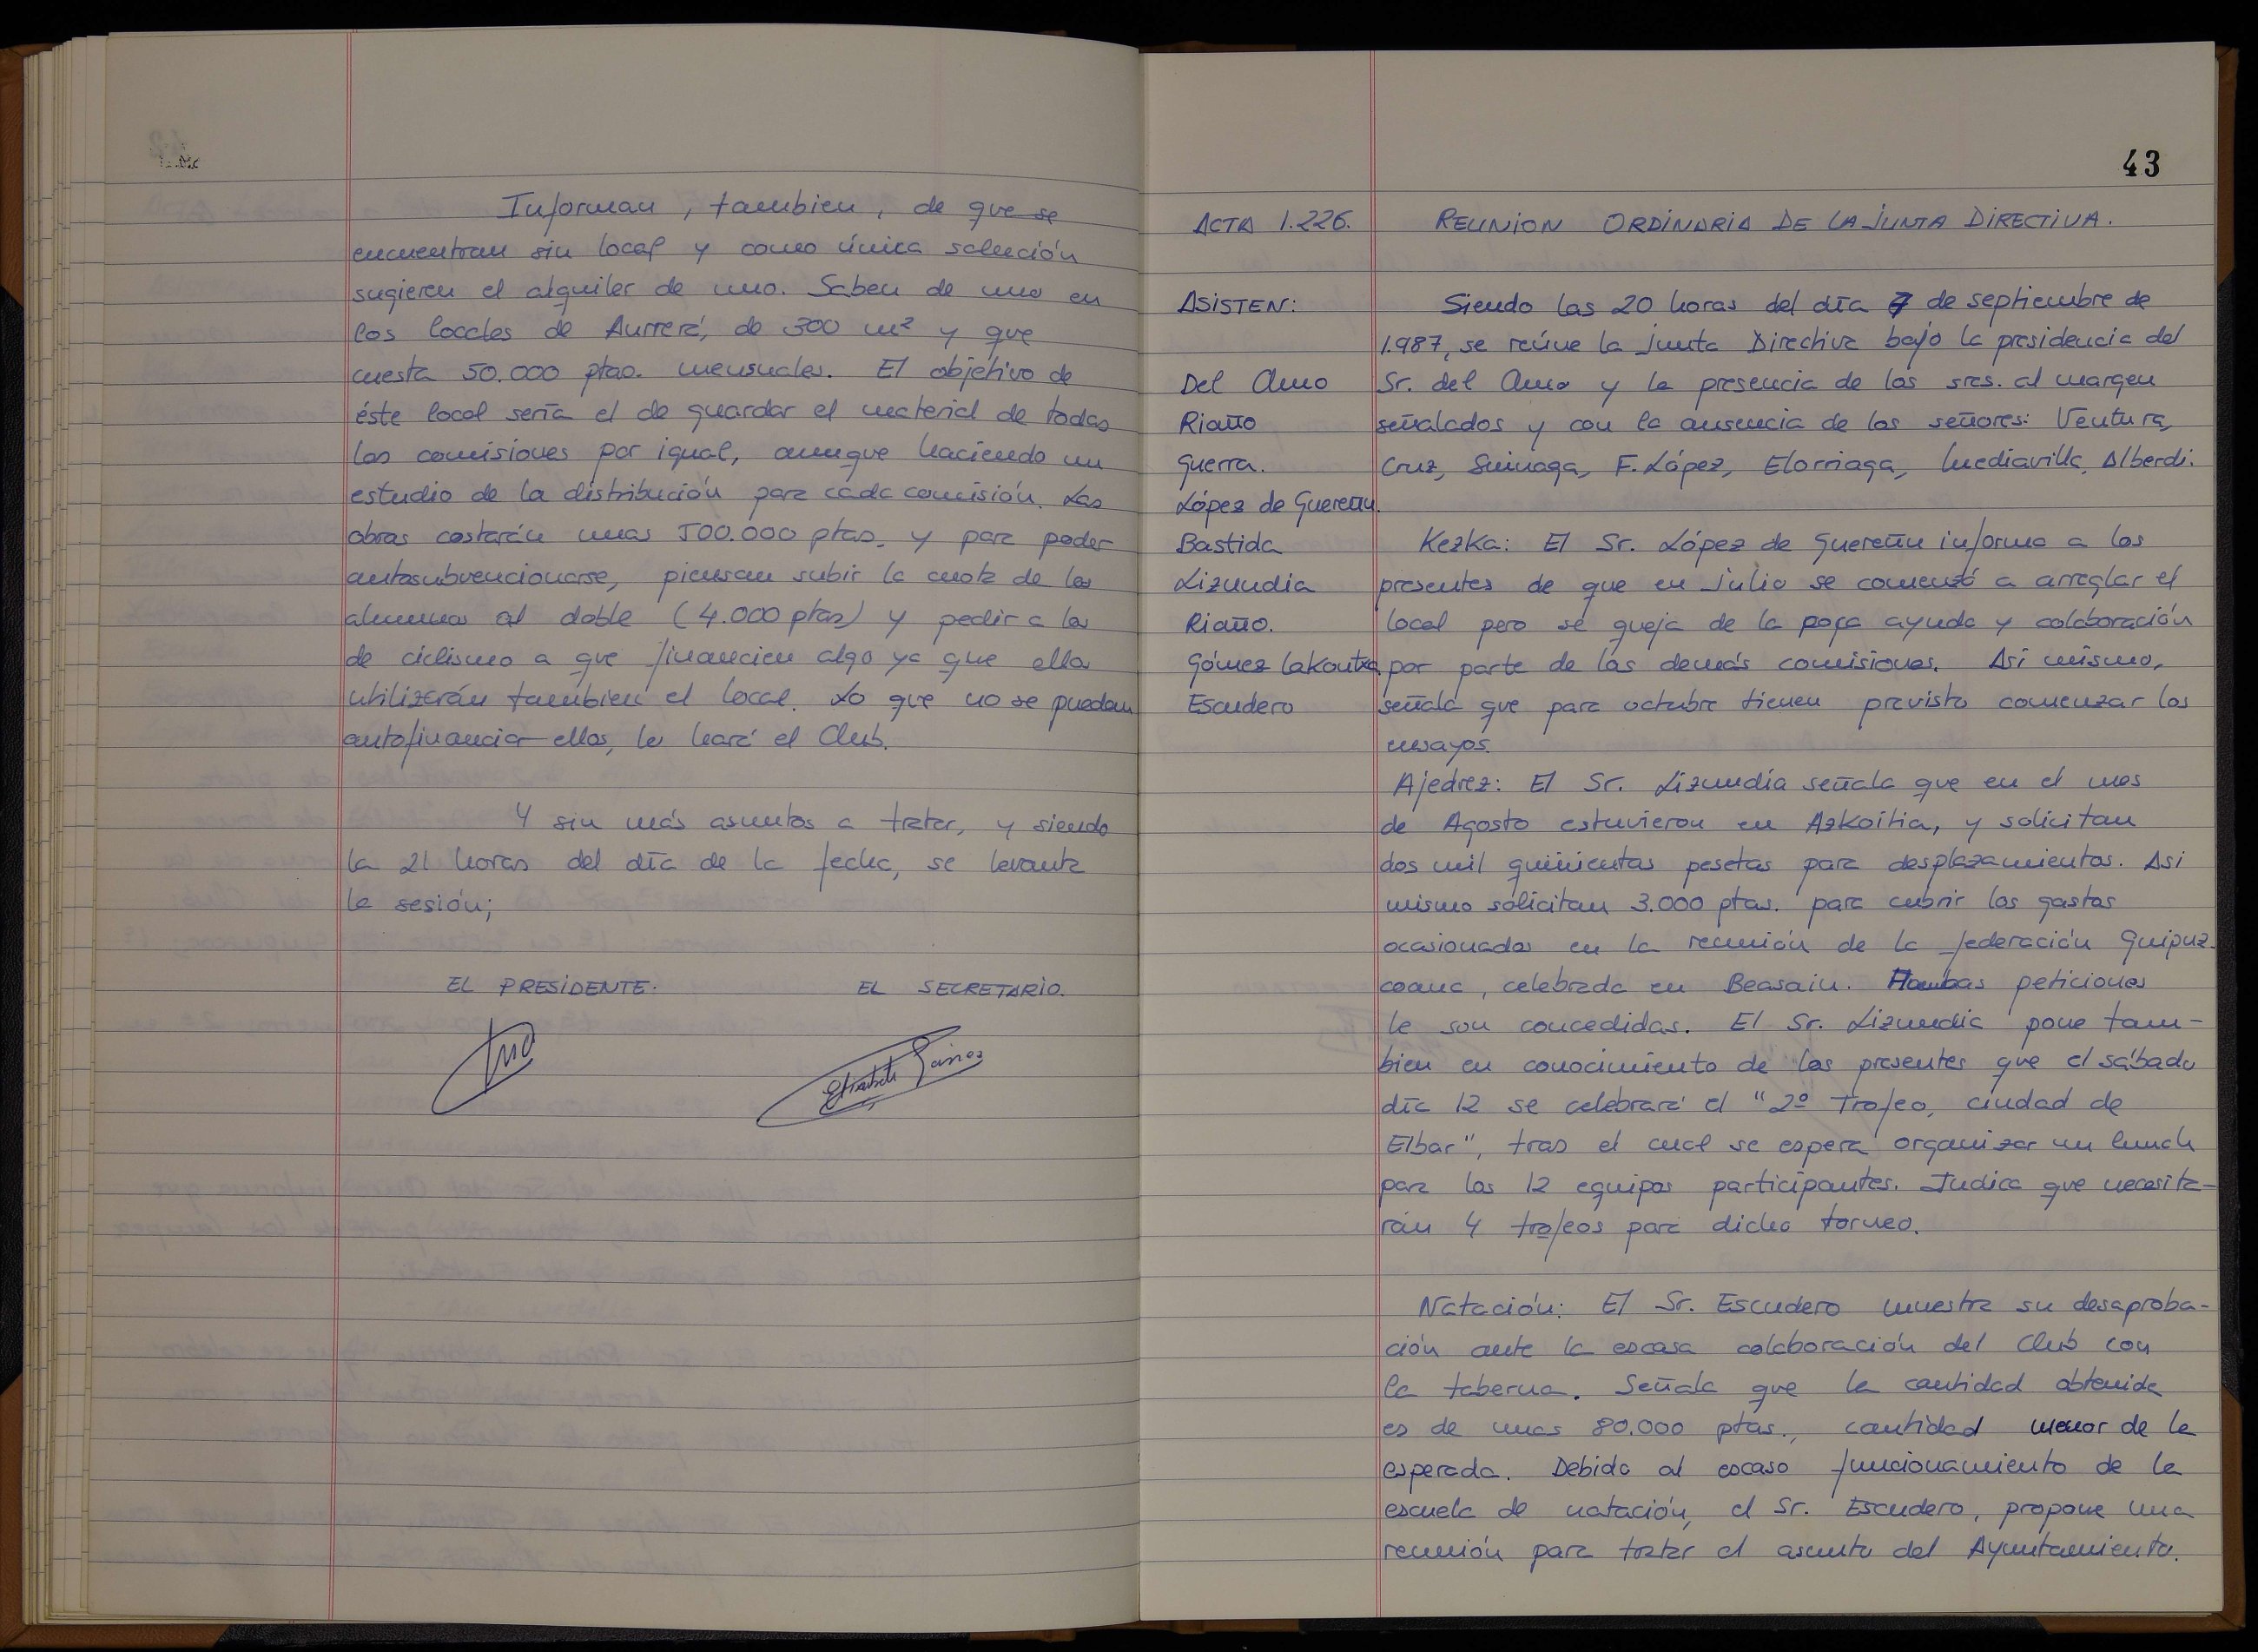 Informan, tambien, de que se
encuentran sin local y como única solución
sugieren el alquiler de uno. Saben de uno en
los locales de Aurrerá, de 300 m² y que
cuesta 50.000 ptas. mensuales. El objetivo de
éste local sería el de guardar el material de todas
las comisiones por igual, aunque haciendo un
estudio de la distribución para cada comisión. Las
obras costarán unas 500.000 ptas. y para poder
autosubvencionarse, piensan subir la cuota de los
alumnos al doble (4.000 ptas) y pedir a los
de ciclismo a que financien algo ya que ellos
utilizarán tambien el local. Lo que no se puedan
autofinanciar ellos, lo hará el Club.
Y sin más asuntos a tratar, y siendo
la 21 horas del día de la fecha, se levanta
la sesión;
EL PRESIDENTE.
EL SECRETARIO.
43
ACTA 1.226.
REUNION ORDINARIA DE LA JUNTA DIRECTIVA.
ASISTEN:
Del Amo
Riaño
Guerra.
López de Guereñu.
Bastida
Lizundia
Riaño.
Gómez Lakontxa
Escudero
Siendo las 20 horas del día 7 de septiembre de
1.987, se reúne la Junta Directiva bajo la presidencia del
Sr. del Amo y la presencia de los sres. al margen
señalados y con la ausencia de los señores: Ventura,
Cruz, Suinaga, F. López, Elorriaga, Mediavilla, Alberdi.
Kezka: El Sr. López de Guereñu informa a los
presentes de que en Julio se comenzó a arreglar el
local pero se queja de la poca ayuda y colaboración
por parte de las demás comisiones. Asi mismo,
señala que para octubre tienen previsto comenzar los
ensayos.
Ajedrez: El Sr. Lizundia señala que en el mes
de Agosto estuvieron en Azkoitia, y solicitan
dos mil quinientas pesetas para desplazamientos. Asi
mismo solicitan 3.000 ptas. para cubrir los gastos
ocasionados en la reunión de la federación Guipuz-
coana, celebrada en Beasain. Ambas peticiones
le son concedidas. El Sr. Lizundia pone tam-
bien en conocimiento de los presentes que el sábado
día 12 se celebrará el "2º Trofeo, ciudad de
Eibar", tras el cual se espera organizar un lunch
para los 12 equipos participantes. Indica que necesita-
rán 4 trofeos para dicho torneo.
Natación: El Sr. Escudero muestra su desaproba-
ción ante la escasa colaboración del Club con
la taberna. Señala que la cantidad obtenida
es de unas 80.000 ptas., cantidad menor de la
esperada. Debido al escaso funcionamiento de la
escuela de natación, el Sr. Escudero, propone una
reunión para tratar el asunto del Ayuntamiento.